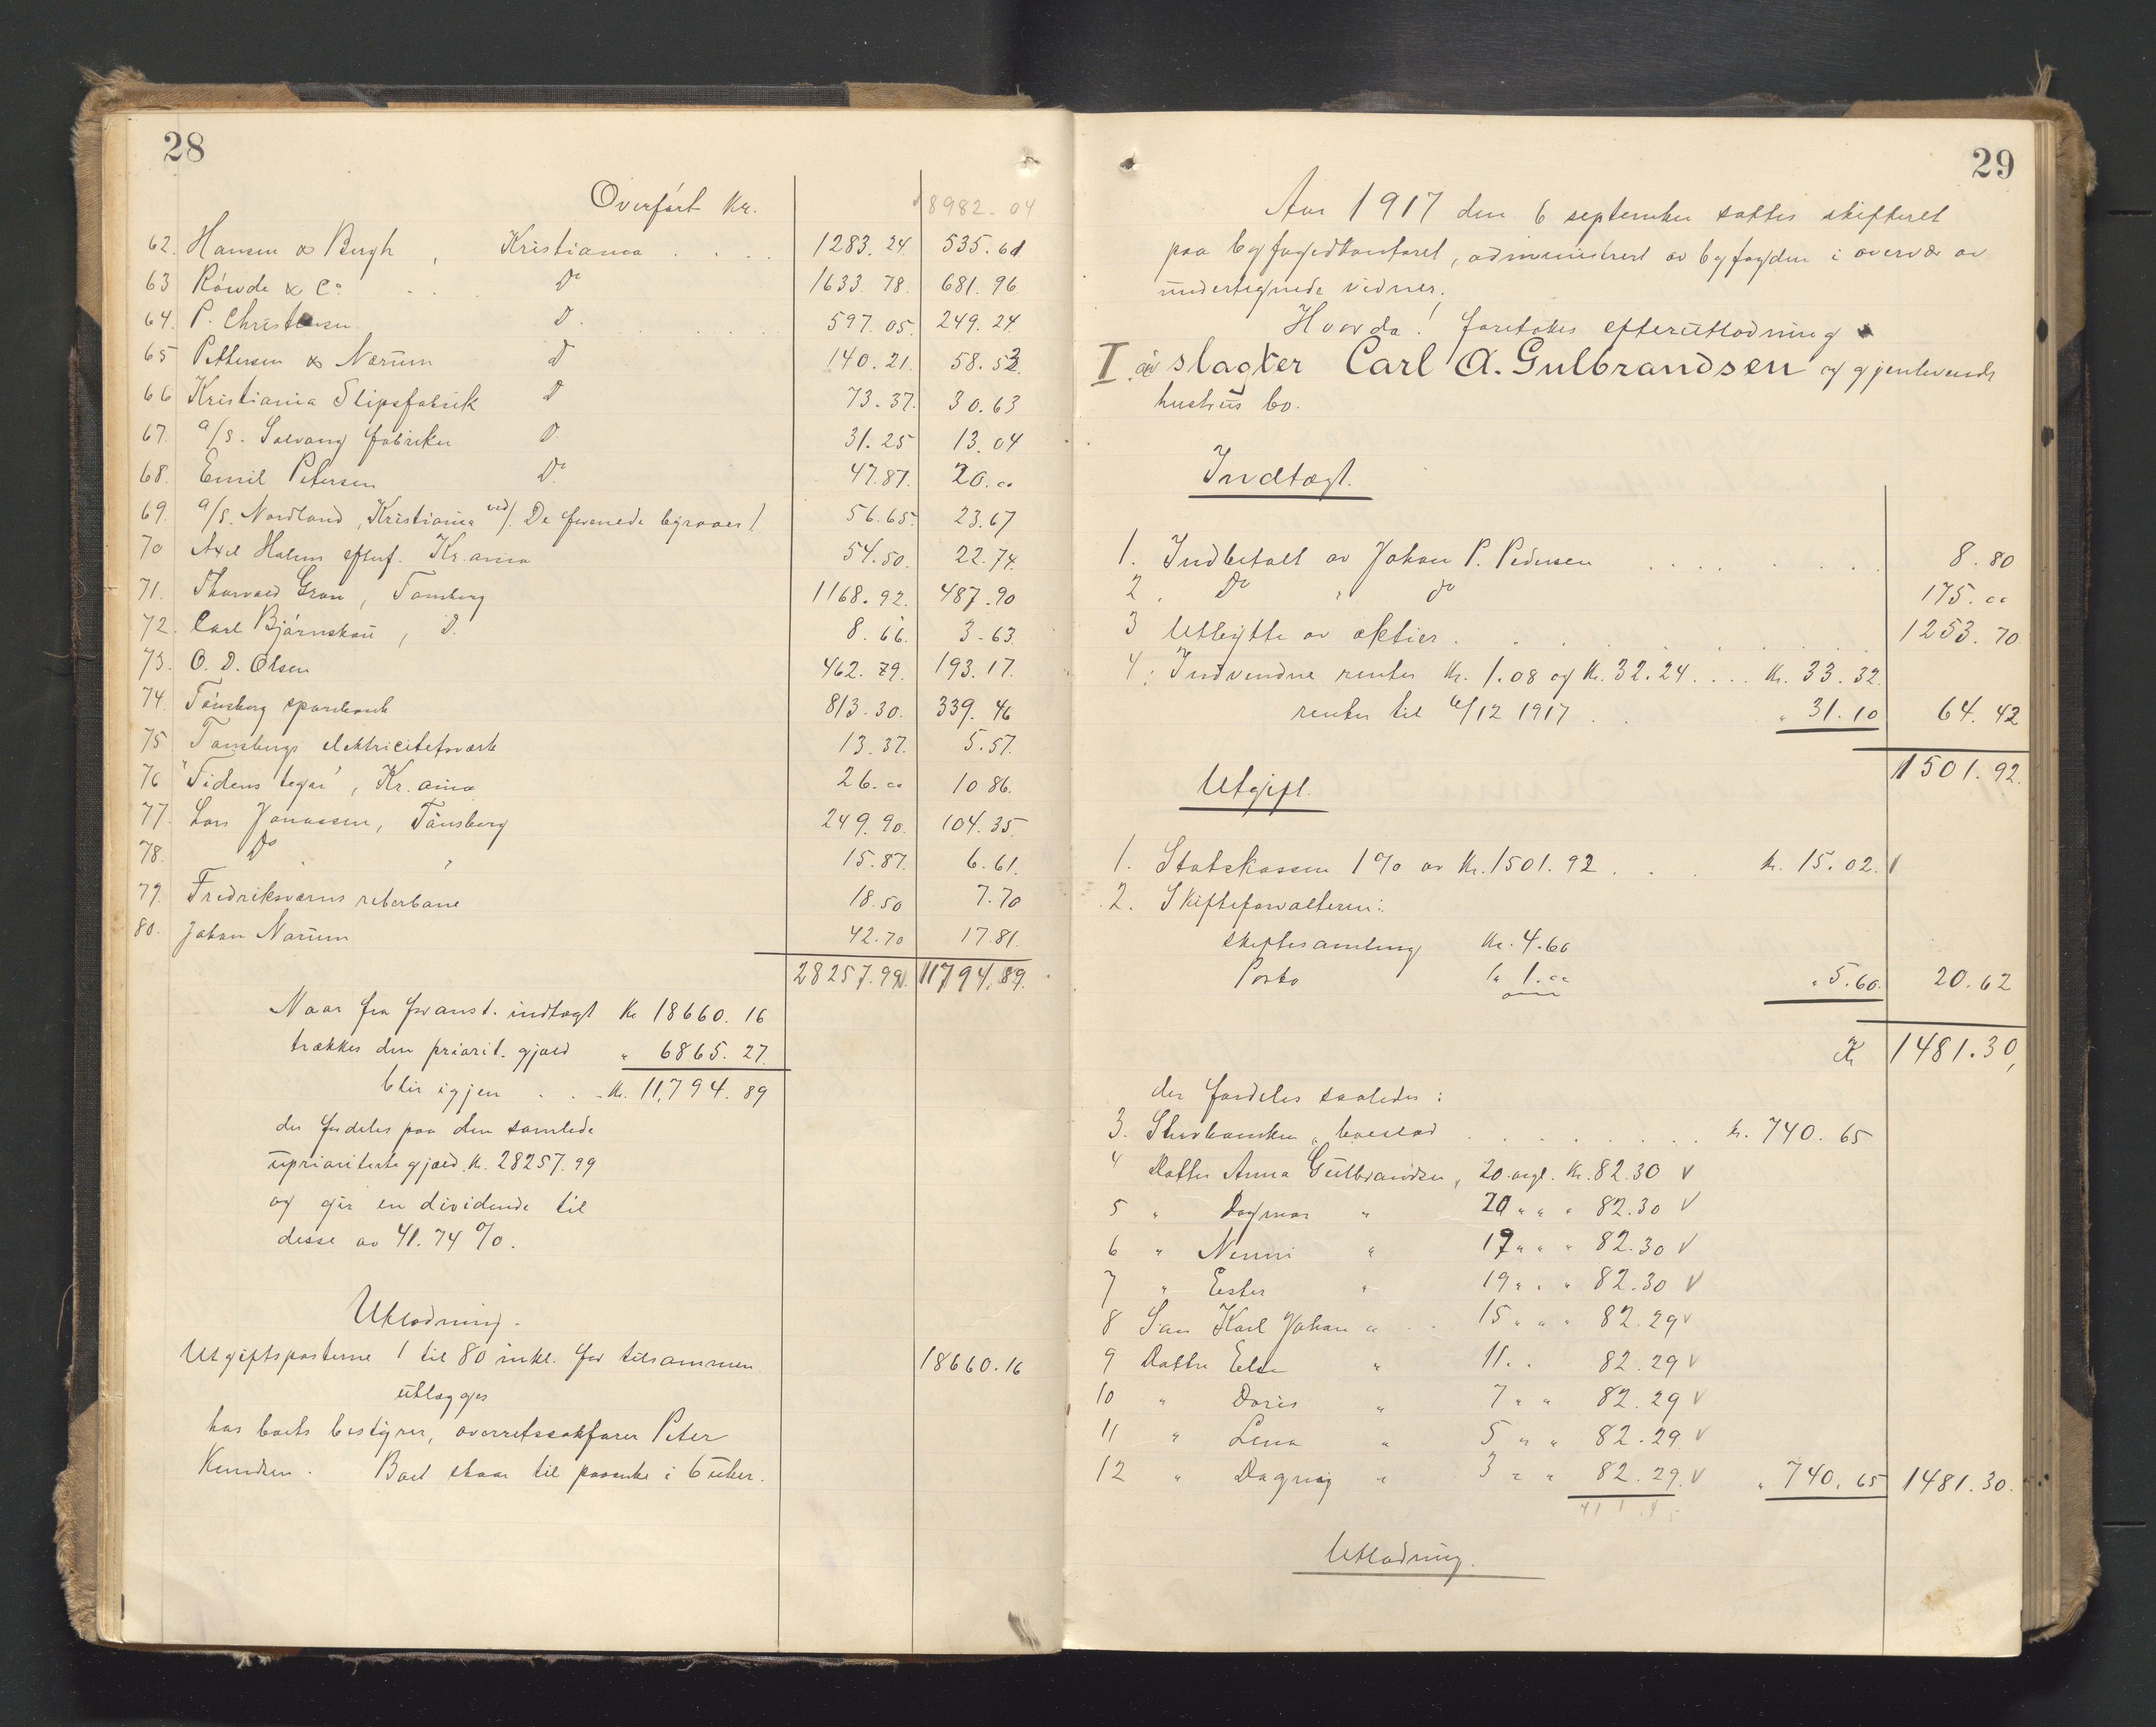 28
Overført Kr. 8982.04
62. Hansen & Bergh, Kristiania . . . . 1283.24 535.61
63 Röwde & Co . . Do 1633.78. 681.96
64. P. Christensen D. . . . . 597.05. 249.24
65 Pettersen & Nærum D 140.21. 58.52
66 Kristiania Slipsfabrik D 73.37. 30.63
67. a/s. Solvang fabriker D. 31.25 13.04
68. Emil Petersen Do. 47.87. 20.00
69. a/s. Nordland, Kristiania ved/. De forenede byraaer/ 56.65. 23.67
70 Axel Holms efterf. Kr.ania 54.50. 22.74.
71. Thorvald Gran, Tønsberg 1168.92. 487.90
72. Carl Bjørnskau, D. 8.66. 3.63.
73. O. D. Olsen 462.79. 193.17.
74. Tønsberg sparebank 813.30. 339.46
75 Tønsbergs elektricitetsværk 13.37. 5.57.
76 "Tidens tegn", Kr.ania 26.00 10.86.
77. Lars Jonassen, Tønsberg 249.90. 104.35.
78. Do " 15.87. 6.61.
79. Fredriksværns reberbane 18.50 7.70
80. Johan Narum 42.70 17.81.
28257.99. 11794.89.
Naar fra foranst. indtægt Kr 18660.16
trækkes den priorit. gjæld " 6865.27.
blir igjen . . . Kr. 11,794.89
der fordeles paa den samlede
upriorriterte gjæld Kr. 28257.99
og gir en dividende til
desse av 41.74 %.
Utlodning.
Utgiftsposterne 1 til 80 inkl. før tilsammen 18660.16
utlægges
hos boets bestyrer, overretssakfører Peter
Knudsen. Boet staar til paaanke i 6 uker.
29
Aar 1917 den 6 september sattes skifteret
paa byfogedkontoret, administrert av byfogden i overvær av
undertegnede vidner.
Hvorda! foretokes efterutlodning
I. av slagter Carl A. Gulbrandsen og gjenlevende
hustrus bo.
Indtægt.
1. Indbetalt av Johan P. Pedersen . . . . . . . 8.80
2. Do " do 175.00
3 Utbytte av aktier . . . . . . . 1253.70
4. Indvundne renter Kr. 1.08 og Kr. 32.24 . . . . Kr. 33.32.
renter til 6/12 1917 . . " 31.10 64.42
1501.92.
Utgift.
1. Statskassen 1 % av Kr. 1501.92 . . . Kr. 15.02.
2. Skifteforvalteren:
skiftesamling Kr. 4.60
Porto " 1.00 " 5.60. 20.62
Kr 1481.30,
der fordeles saaledes:
3. Enkens boeslod . . . . . . . . Kr. 740.65
4 Datter Anna Gulbrandsen, 20 aargl. Kr. 82.30 V
5 " Dagmar " 20 " " " 82.30 V
6 " Nenni " 19 " " " 82.30 V
7 " Ester " 19 " " " 82.30 V
8 Søn Karl Johan " . . 15 " " " 82.29 V
9 Datter Else " 11 . . 82.29 V
10 " Doris " 7 " " 82.29 V
11 " Lena " 5 " " 82.29 V
12 " Dagny " 3 " " 82.29. V " 740.65 1481.30.
Utlodning.